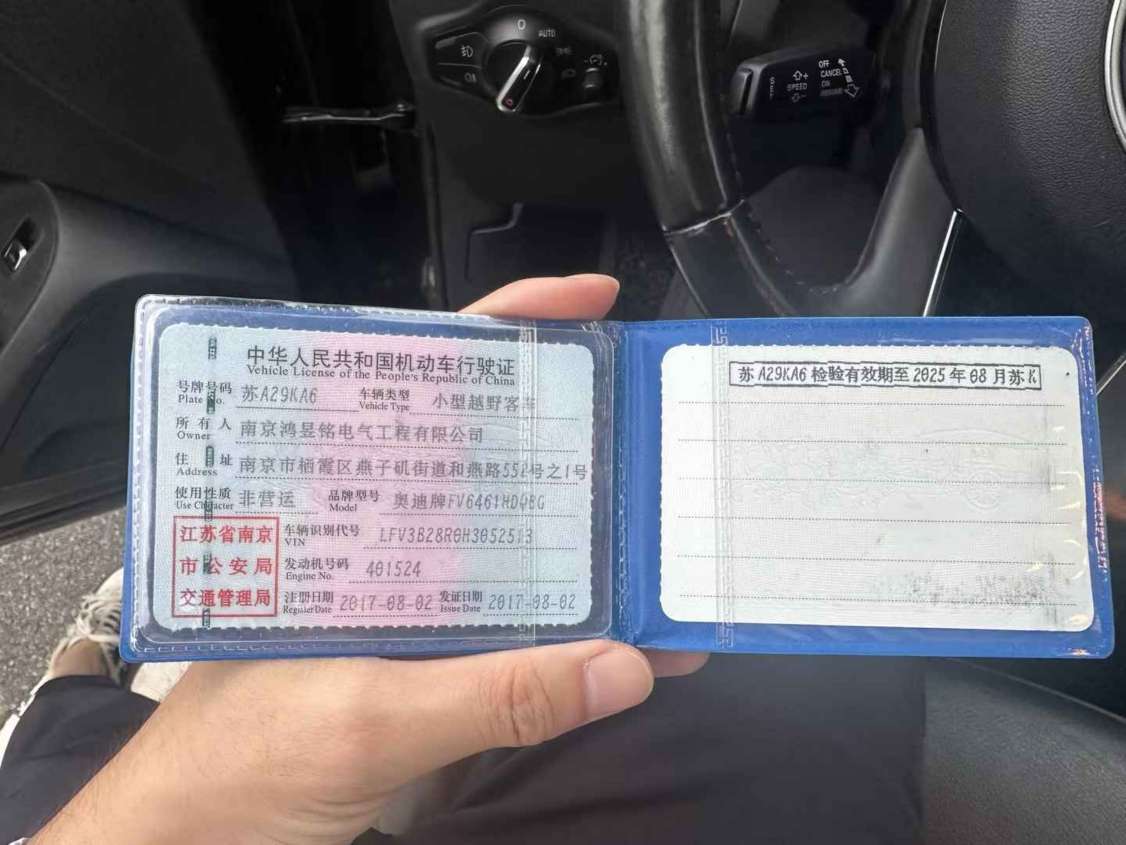 O
AUTO
OFF
CANCEL
ON
RESUME
SPEED
SET
中华人民共和国机动车行驶证
Vehicle License of the People's Republic of China
号牌号码 苏A29KA6 车辆类型 小型越野客车
Plate No. Vehicle Type
所有人 南京鸿昱铭电气工程有限公司
Owner
住址 南京市栖霞区燕子矶街道和燕路552号之1号
Address
使用性质 非营运 品牌型号 奥迪牌FV6461HDQBG
Use Character Model
江苏省南京
市公安局
交通管理局
车辆识别代号 LFV3B28R0H3052513
VIN
发动机号码 401524
Engine No.
注册日期 2017-08-02 发证日期 2017-08-02
Register Date Issue Date
苏A29KA6 检验有效期至 2025年08月苏K